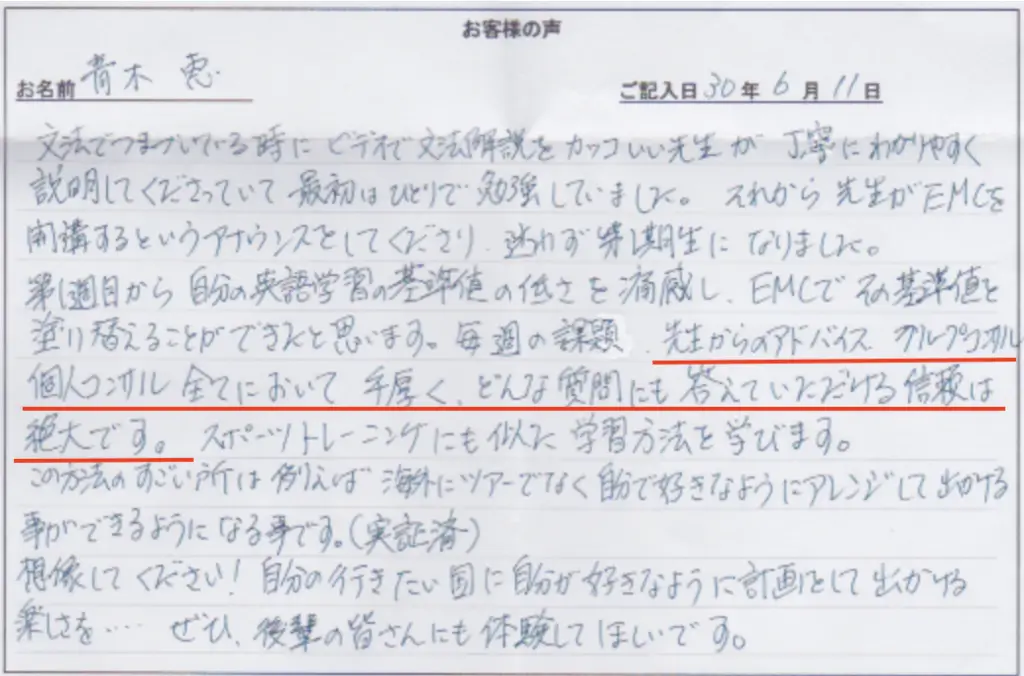 お客様の声
お名前 青木 恵 ご記入日 30年 6月 11日
文法でつまづいている時に ビデオで文法解説を カッコいい先生が 丁寧にわかりやすく
説明してくださっていて 最初はひとりで勉強していました。 それから 先生がEMCを
開講するというアナウンスをしてくださり、迷わず第1期生に なりました。
第1週目から 自分の英語学習の基準値の低さを痛感し、EMCでその基準値を
塗り替えることができたと思います。毎週の課題、先生からのアドバイス グループコンサル
個人コンサル 全てにおいて 手厚く、どんな質問にも 答えていただける信頼は
絶大です。スポーツトレーニングにも似た 学習方法を学びます。
この方法のすごい所は 例えば 海外にツアーでなく自分で好きなようにアレンジして出かける
事ができるようになる事です。(実証済)
想像してください！自分の行きたい国に自分が好きなように計画して出かける
楽しさを…… ぜひ、後輩の皆さんにも体験してほしいです。